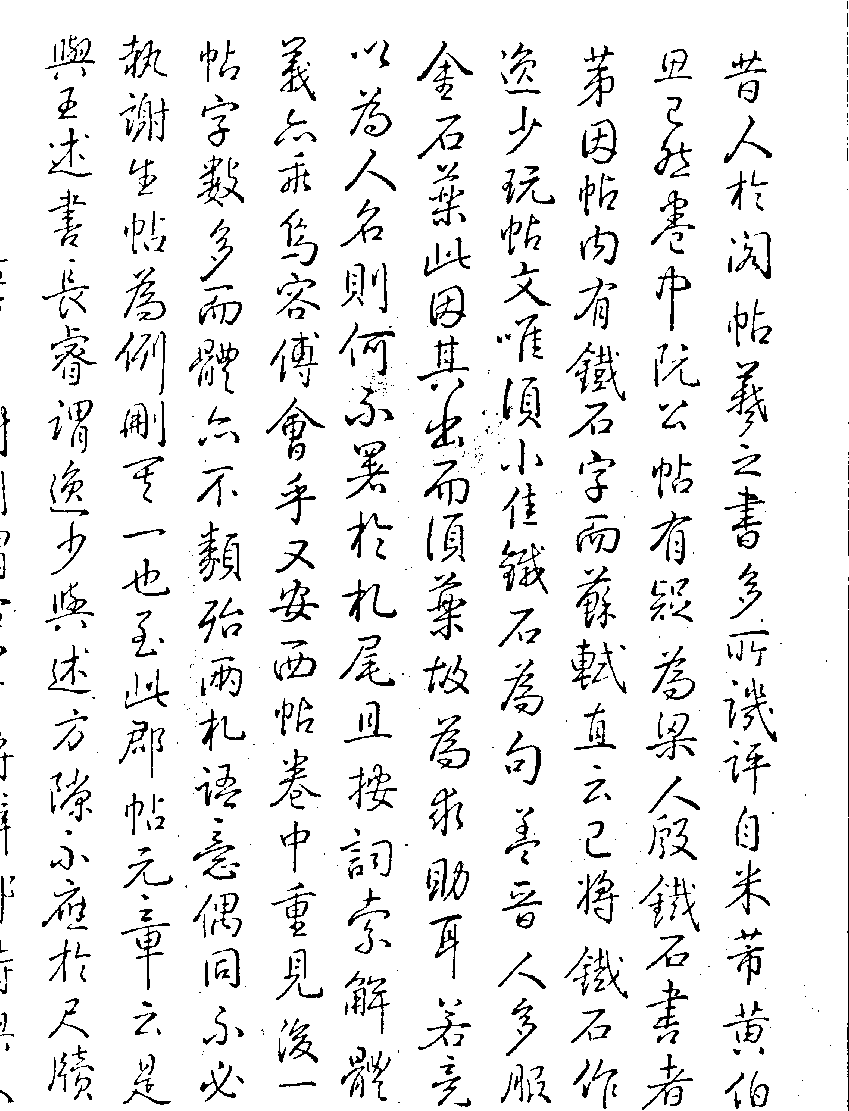 昔人於閣帖羲之書多所譏評自米芾黃伯
思已然卷中阮公帖有疑為梁人殷鐵石書者
第因帖內有鐵石字而蘇軾直云已將鐵石作
逸少玩帖文唯須小佳鐵石為句蓋晉人多服
金石藥此因其出而須藥故為求助耳若竟
以為人名則何不署於札尾且按詞索解體
義亦乖烏容傅會乎又安西帖卷中重見後一
帖字數多而體亦不類殆兩札語意偶同不必
執謝生帖為例刪其一也至此郡帖元章云是
與王述書長睿謂逸少與述方隙不應於尺牘